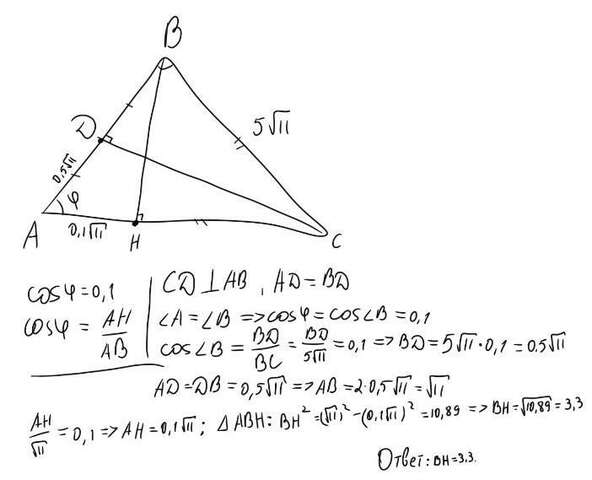 B
D
5√11
0,5√11
φ
A
0,1√11
H
C
cosφ=0,1
cosφ = AH/AB
CD⊥AB, AD=BD
∠A=∠B => cosφ=cos∠B=0,1
cos∠B = BD/BC = BD/5√11 = 0,1 => BD=5√11·0,1=0.5√11
AD=DB=0,5√11 => AB=2·0,5√11=√11
AH/√11 = 0,1 => AH=0,1√11; △ABH: BH²=(√11)²-(0,1√11)²=10,89 => BH=√10,89=3,3
Ответ: BH=3.3.